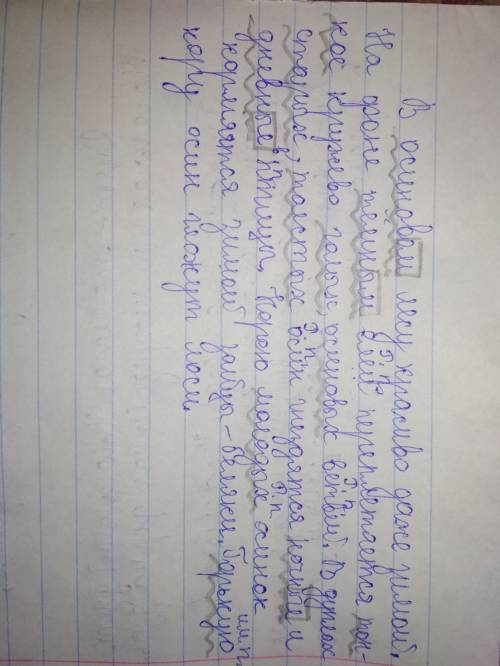 В осиновом лесу красиво даже зимой.
На фоне темных елей переплетается тон-
кое кружево голых осиновых ветвей. В дуплах
старых, толстых осин гнездятся ночные и
дневные птицы. Корою молодых осинок
кормятся зимой зайцы - беляки. Горькую
кору осин гложут лоси.